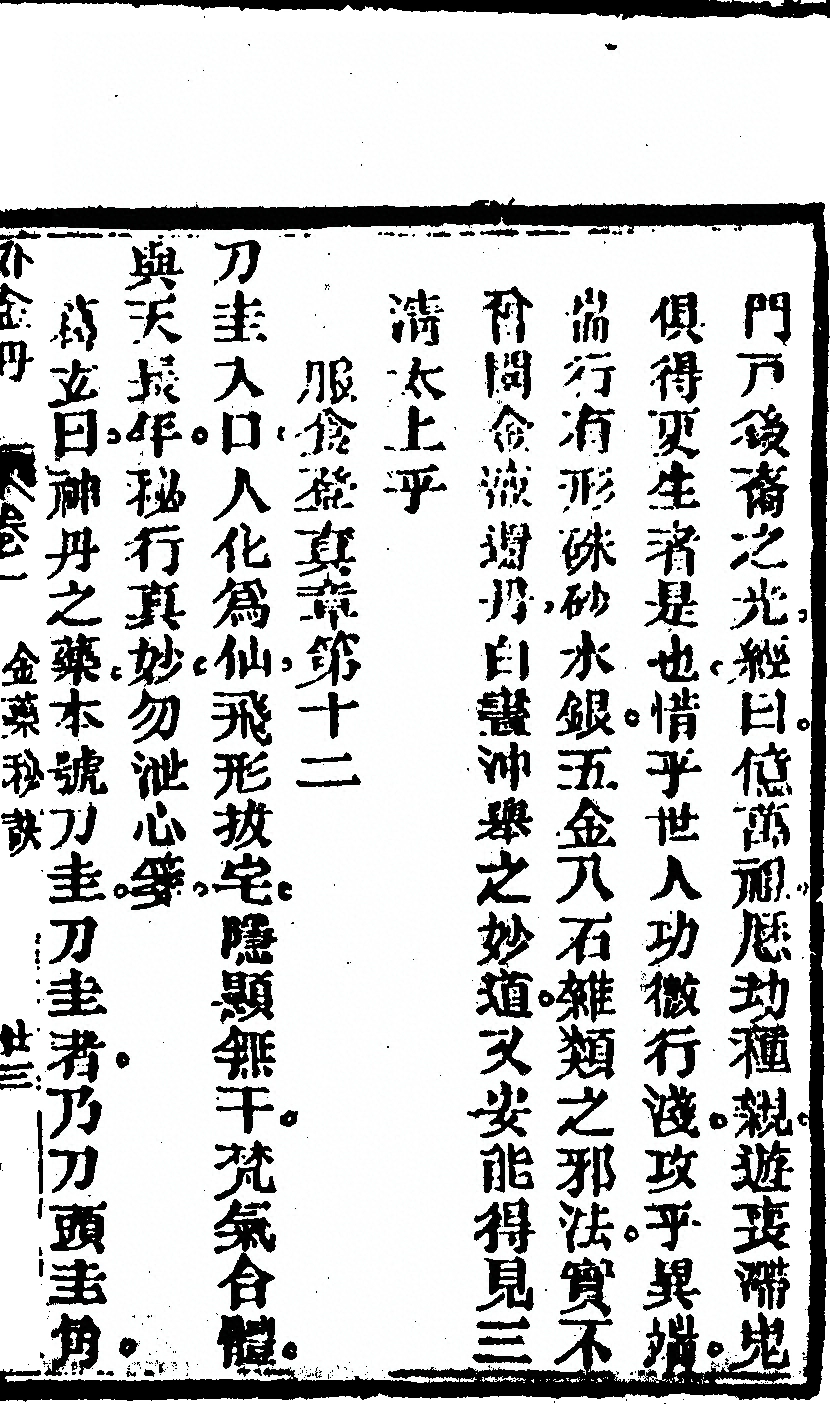 門戸後裔之光經曰億萬祖歷劫種親遊喪滯鬼
俱得更生者是也惜乎世人功微行淺攻乎異端
耑行有形硃砂水銀五金八石雜類之邪法實不
曾聞金液還丹白晝沖舉之妙道又安能得見三
清太上乎
服食登真章第十二
刀圭入口人化爲仙飛形拔宅隱顯無干梵氣合體
與天長年秘行真妙勿泄心箋
葛玄曰神丹之藥本號刀圭刀圭者乃刀頭圭角
外金丹 卷一 金藥秘訣 廿三